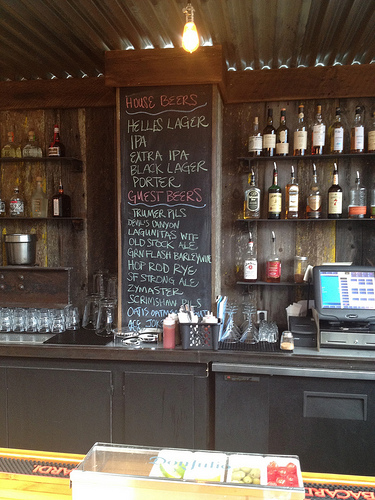 HOUSE BEERS
HELLES LAGER
IPA
EXTRA IPA
BLACK LAGER
PORTER
GUEST BEERS
TRUMER PILS
DEVIL'S CANYON
LAGUNITAS WTF
OLD STOCK ALE
GRN FLASH BARLEYWINE
HOP ROD RYE
SF STRONG ALE
ZYMASTER
SCRIMSHAW PILS
ACE
BACARDI
BACARDI